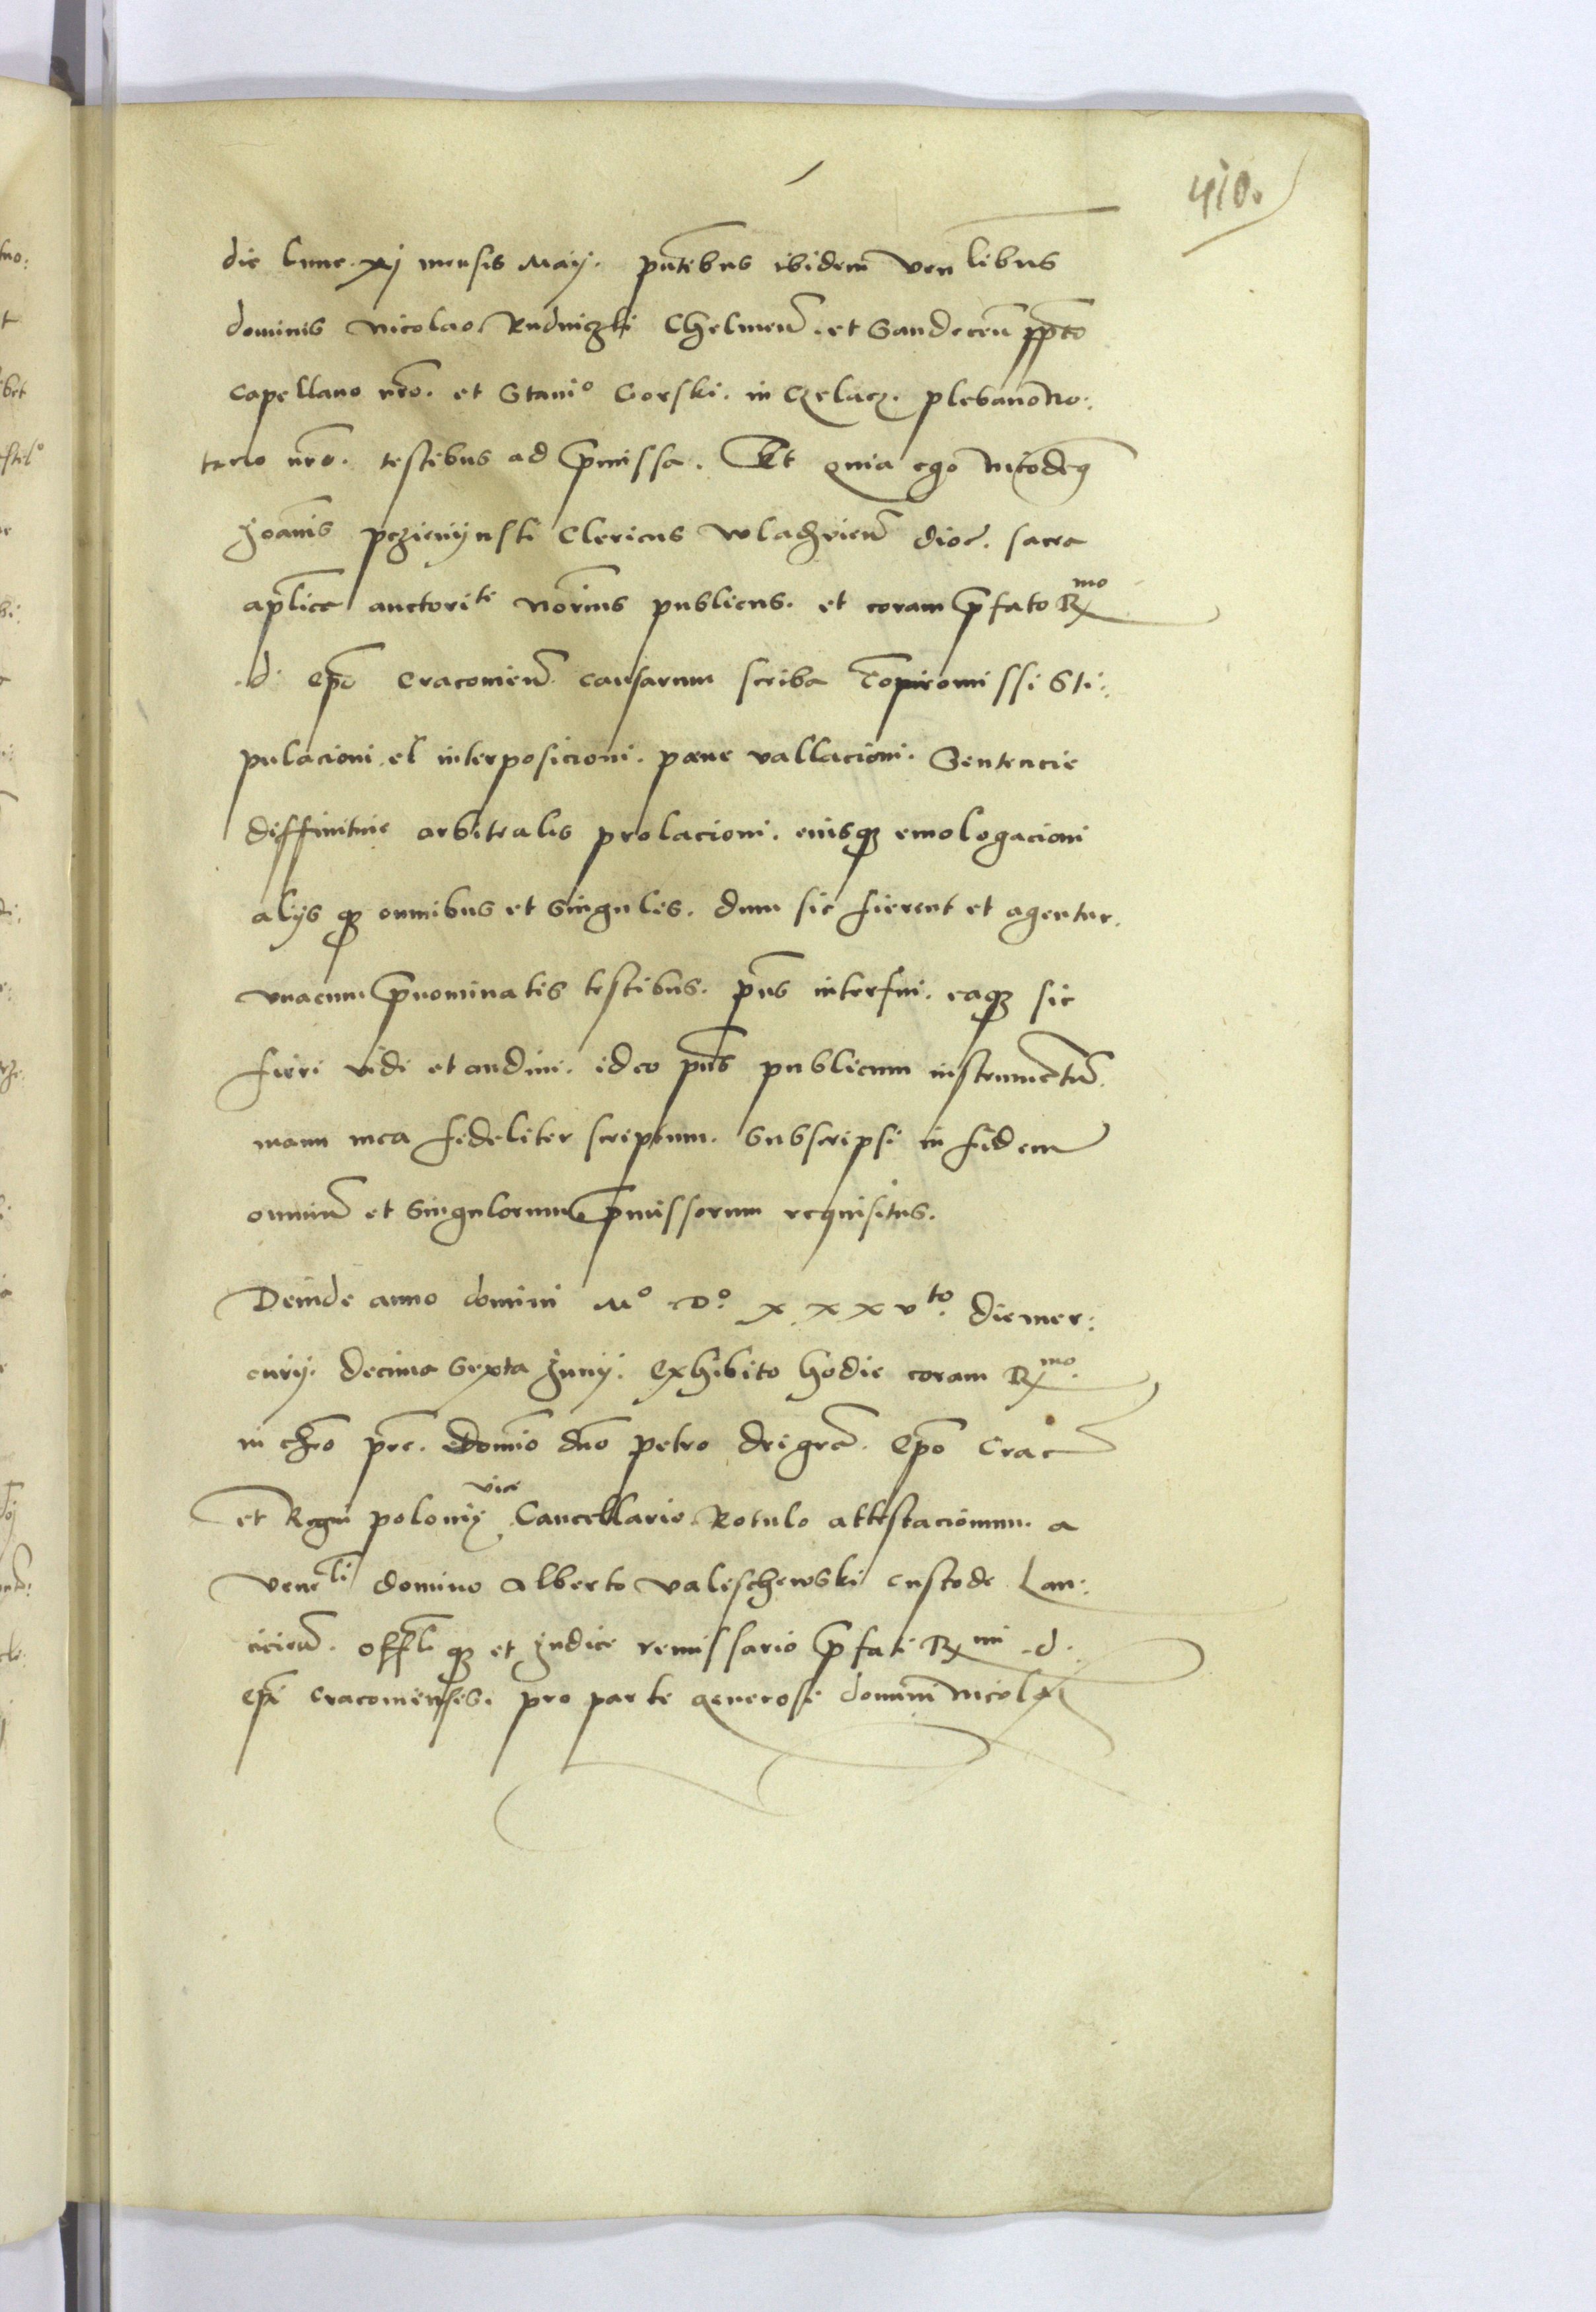 410.
die lune. xj mensis Maij. pn̄tibus ibidem venlibus
dominis Nicolao Rudniczki Chelmen̄. et Sandecen̄ pp̄to
capellano nr̄o. et Stanio Gorski. in Czelacz. plebano No:
tario nr̄o. testibus ad p̄missa. Et quia ego Nicodeq
Joannis Clericus wladiīvien̄ dioc̄. sacra
apl̄ica auctoriti nor̄ius publicus. et coram p̄fato Rmo
d. ep̄o Cracovien̄. causarum scriba Comp̄romissi Sti:
pulacioni. et interposicioni. pene vallacioni. Sentencie
diffinitive arbitralis prolacioni. eiusqȝ emologacioni
alijs qȝ omnibus et singulis. dum sic fierent et agentur.
unacum p̄nominatis testibus. pn̄s interfui. eaqȝ sic
fieri vidi et audivi. ideo pn̄s publicum instrumentū.
manu mea fideliter scriptum. Subscripsi in fidem
omniū et singulorum p̄missorum requisitus.
Deinde anno domini Mo Do. xxxvto. die mer:
curij. decima sexta Junij. Exhibito hodie coram Rmo.
in chr̄o pr̄e. Domīo dn̄o petro dei gr̄a. Ep̄o Crac̄
et Regni polonij vice Cancellario. Rotulo attestacionum. a
veneli domino Alberto valischewski custode Lan:
cicien̄. offl̄i qȝ et Judice remissario p̄fati Rmi .d.
ep̄i Cracoviensis. pro parte generosi domini Nicolai